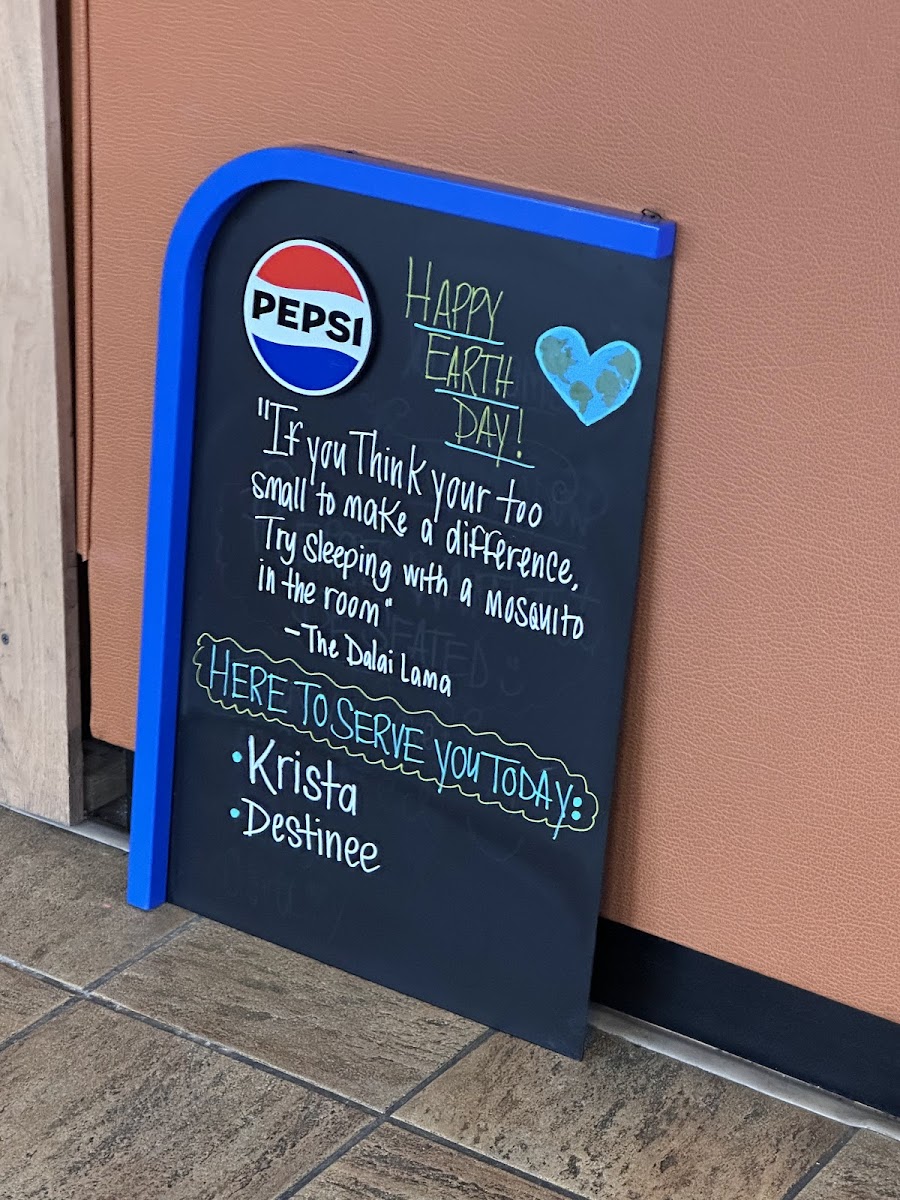 PEPSI
HAPPY
EARTH
DAY!
"If you Think your too
small to make a difference,
Try sleeping with a mosquito
in the room"
-The Dalai Lama
HERE TO SERVE YOU TODAY:
•Krista
•Destinee